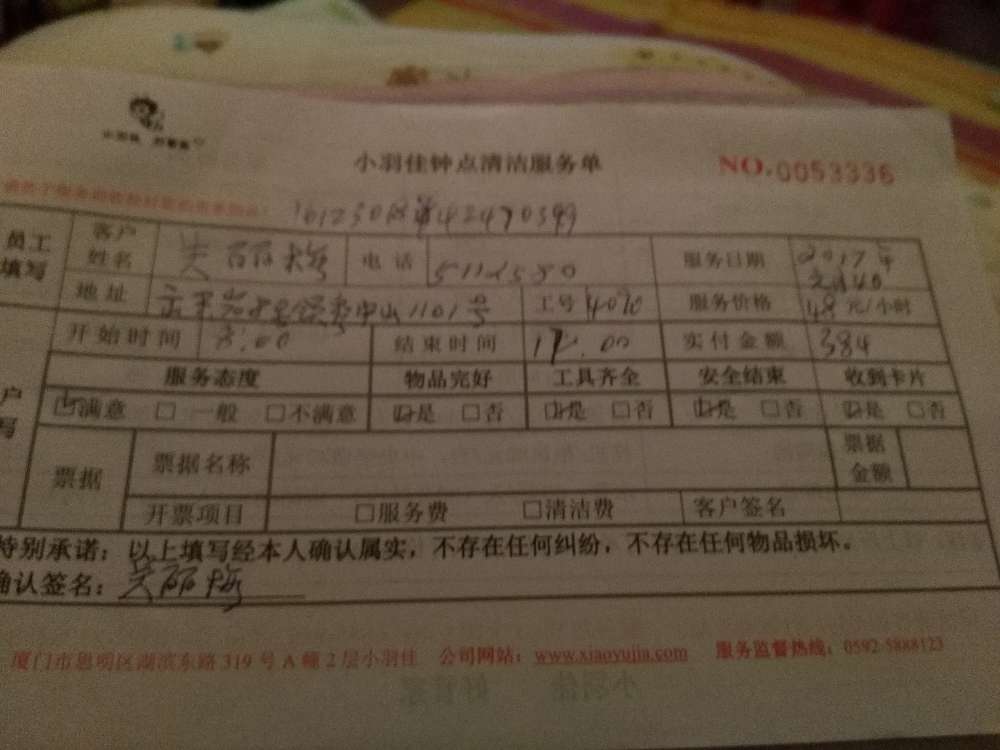 小羽佳钟点清洁服务单 NO.0053336
员工填写 客户姓名 吴丽梅 电话 5112580 服务日期 2017年
地址 1101号 工号 4070 服务价格 48元/小时
开始时间 8:00 结束时间 17.00 实付金额 384
服务态度 物品完好 工具齐全 安全结束 收到卡片
☑满意 □一般 □不满意 ☑是 □否 ☑是 □否 ☑是 □否 ☑是 □否
票据 票据名称 票据金额
开票项目 □服务费 □清洁费 客户签名
特别承诺：以上填写经本人确认属实，不存在任何纠纷，不存在任何物品损坏。
确认签名：吴丽梅
厦门市思明区湖滨东路319号A幢2层小羽佳 公司网站：www.xiaoyujia.com 服务监督热线：0592-5888123